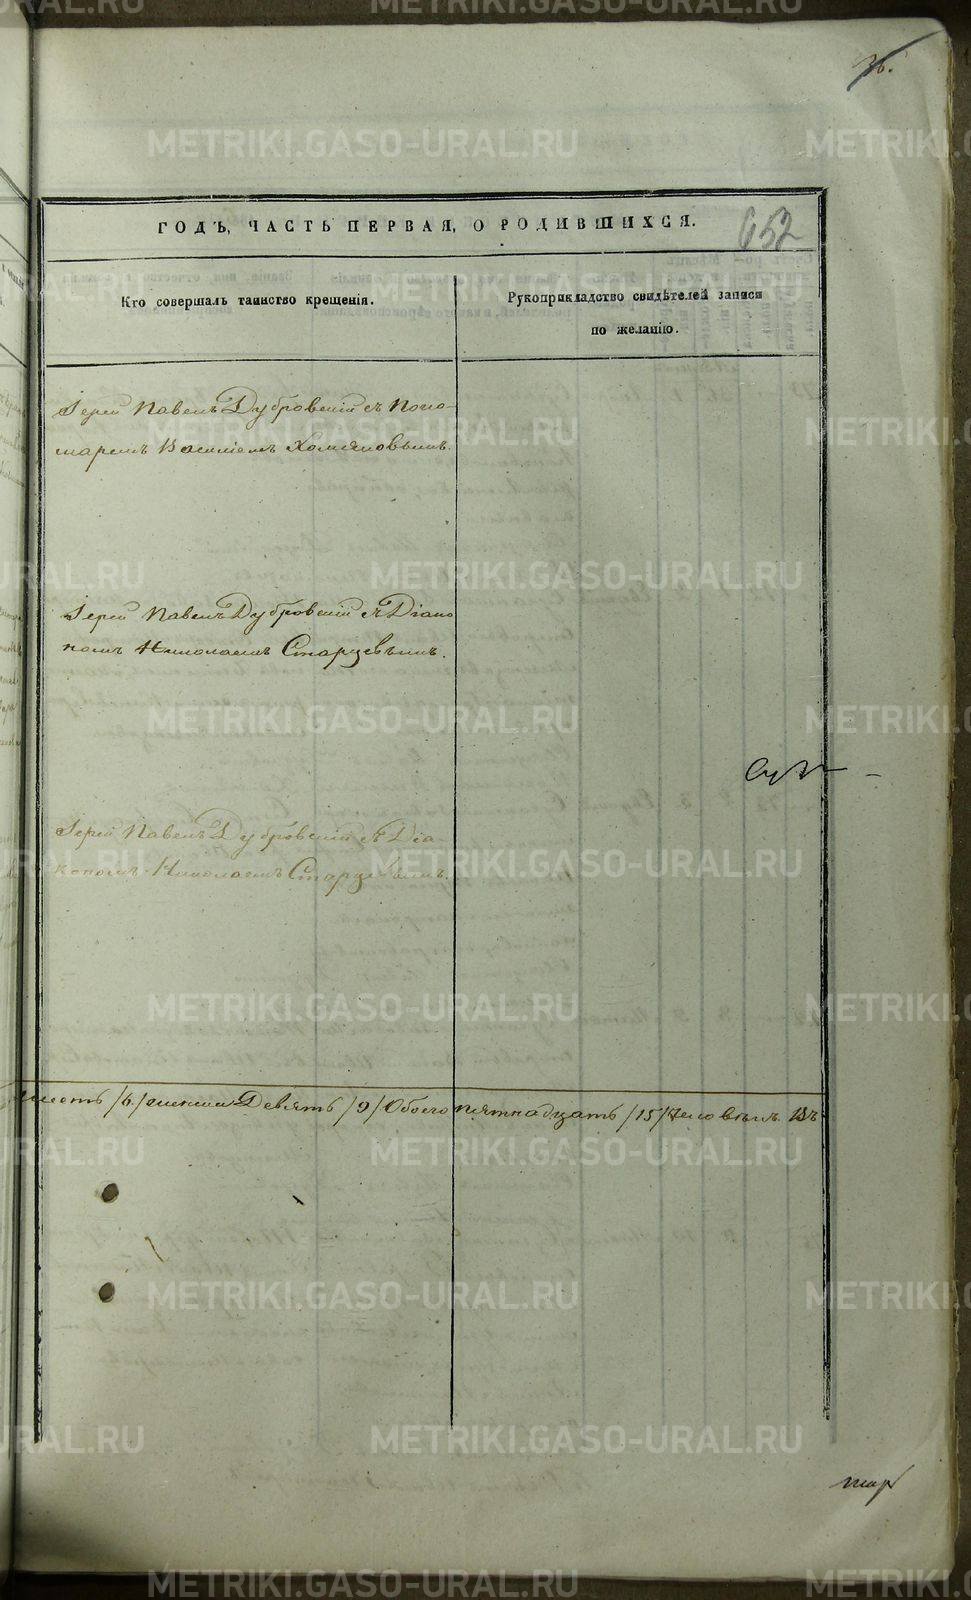 36.
ГОДЪ, ЧАСТЬ ПЕРВАЯ, О РОДИВШИХСЯ.
652
Кто совершалъ таинство крещенія.
Рукоприкладство свидѣтелей записи
по желанію.
Іерей Павелъ Дубровскій съ Поно-
маремъ Василіемъ Хомяковымъ.
Іерей Павелъ Дубровскій съ Діако
номъ Николаемъ Старцевымъ.
Іерей Павелъ Дубровскій съ Діа
кономъ Николаемъ Старцевымъ.
шесть /6/ женска Девять /9/ Обоего пятнадцать /15/ человѣкъ. Въ
METRIKI.GASO-URAL.RU